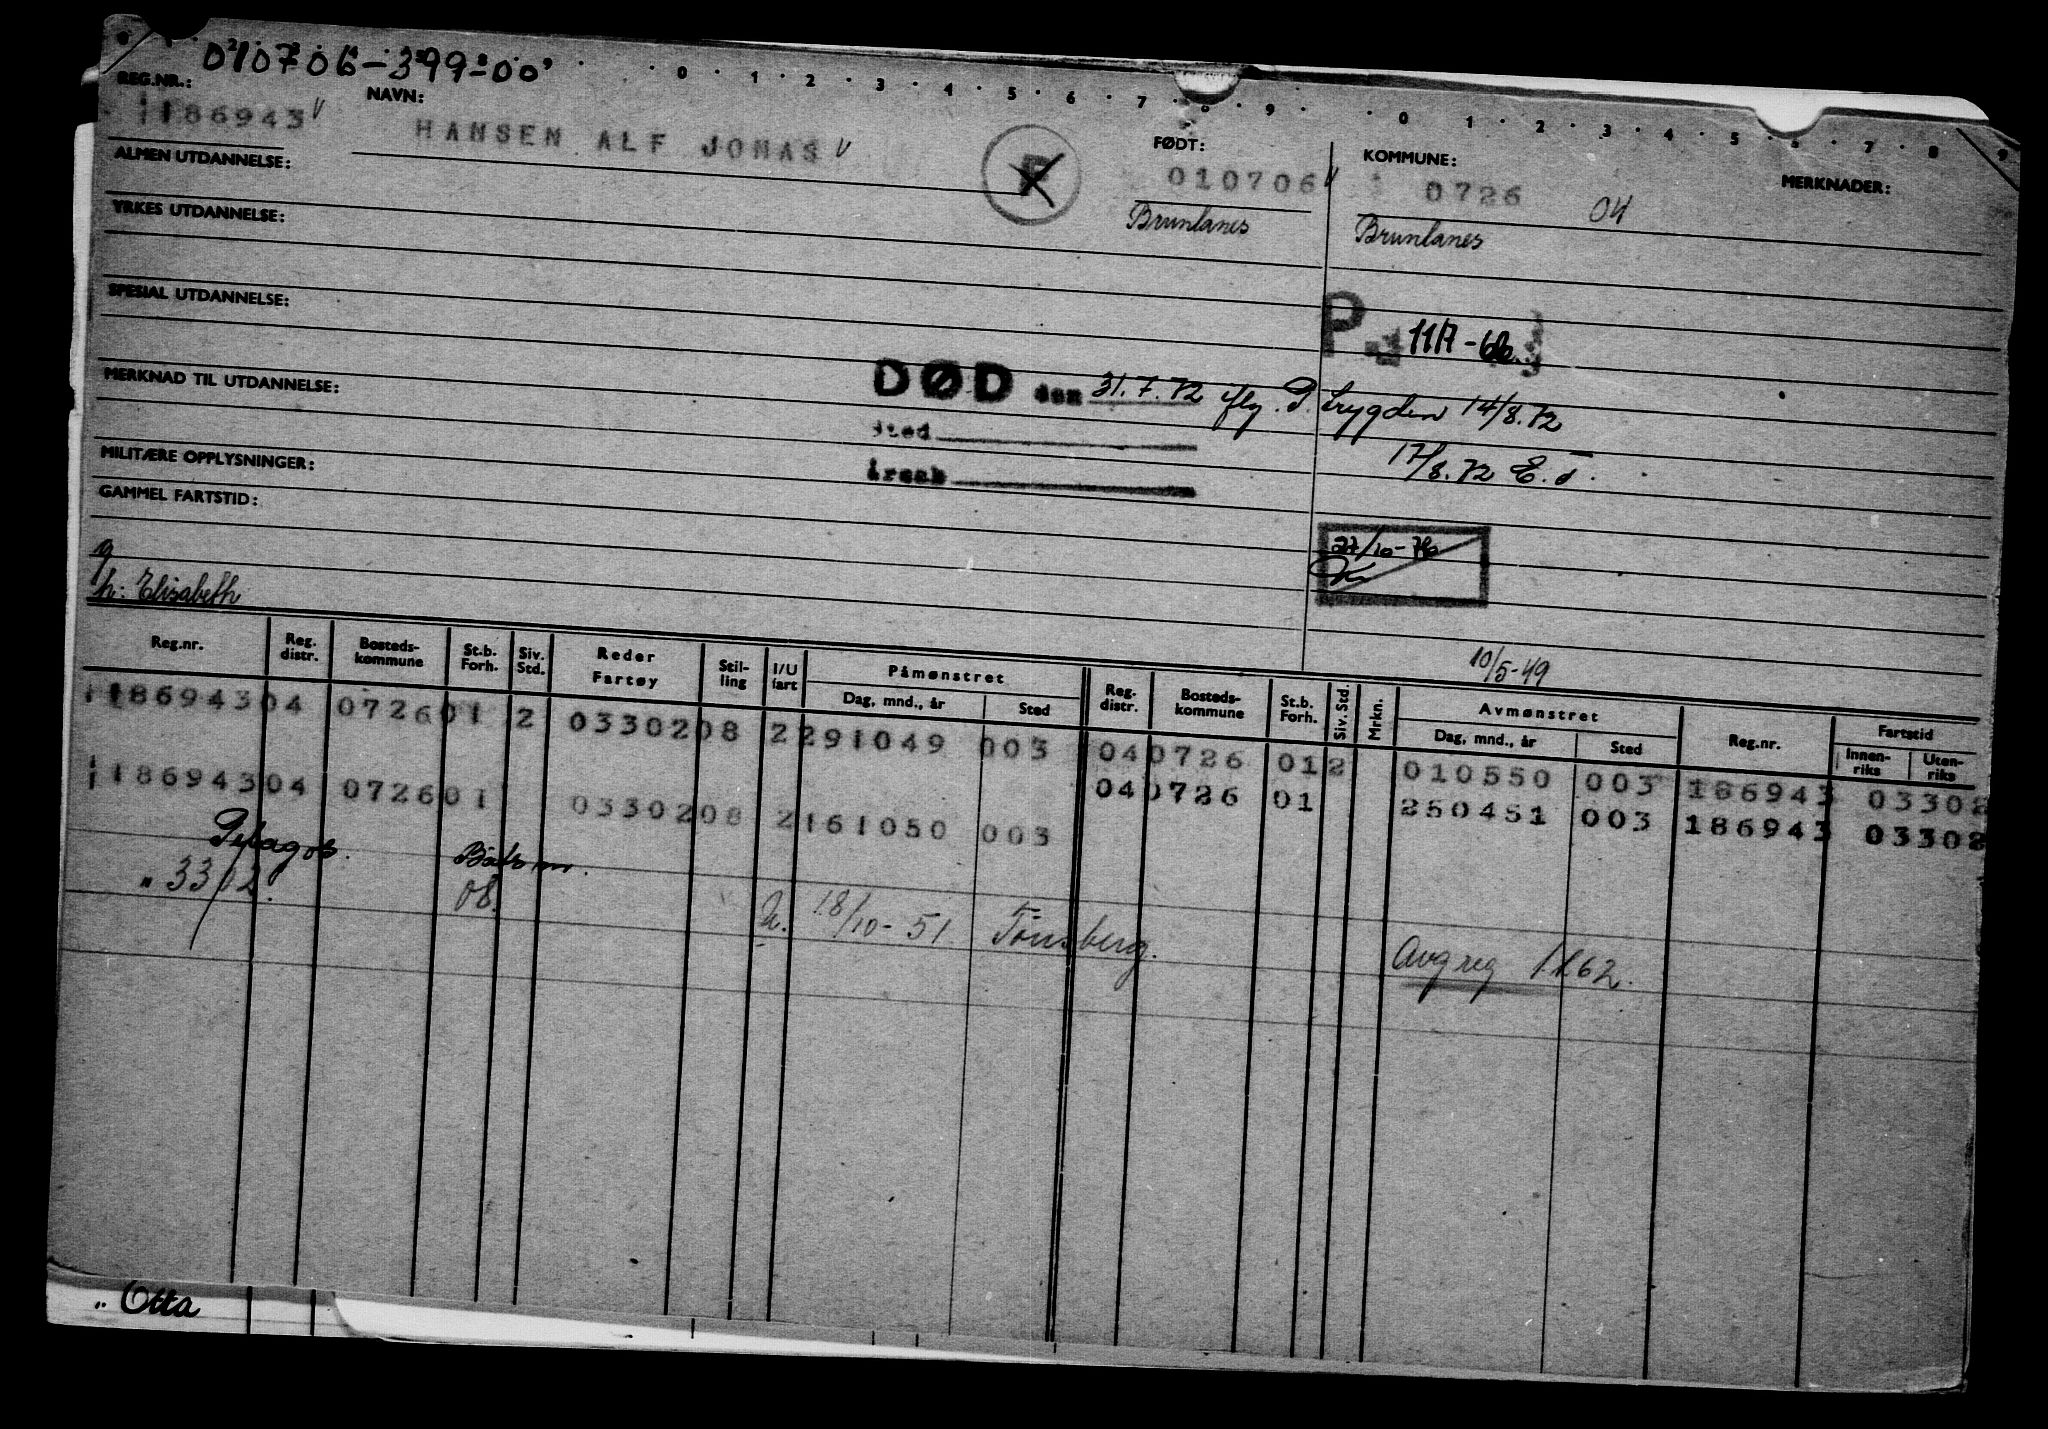 010706-399-00
0 1 2 3 4 5 6 7 8 9 0 1 2 3 4 5 6 7 8 9
REG.NR.: NAVN: FØDT: KOMMUNE: MERKNADER:
186943 HANSEN ALF JONAS 010706 0726 04
Brunlanes Brunlanes
ALMEN UTDANNELSE:
YRKES UTDANNELSE:
SPESIAL UTDANNELSE:
P. 11/7-66
MERKNAD TIL UTDANNELSE:
DØD den 31.7.72 iflg. P. trygden 14/8.72
sted
årsak
17/8.72
MILITÆRE OPPLYSNINGER:
GAMMEL FARTSTID:
27/10-76
h: Elisabeth
10/5-49
Reg.nr. Reg. distr. Bosteds-kommune St.b. Forh. Siv. Std. Reder Fartøy Stil-ling I/U fart Påmønstret Dag, mnd., år Sted Reg. distr. Bosteds-kommune St.b. Forh. Siv. Std. Mrkn. Avmønstret Dag, mnd., år Sted Reg.nr. Fartstid Innen-riks Uten-riks
186943 04 0726 01 2 03302 08 2 291049 003 04 0726 01 2 010550 003 186943 03302
186943 04 0726 01 03302 08 2 161050 003 04 0726 01 250451 003 186943 03302
Pelagos. Båtsm.
" 3302. 08. U. 18/10-51 Tønsberg. Avg reg 1.1.62.
" Otta